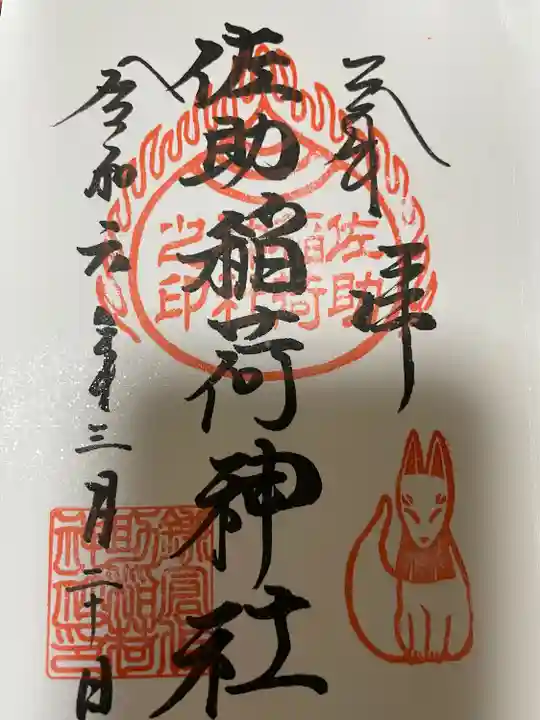 奉拝
佐助稲荷神社
令和六年三月二十日
佐助
稲荷
神社
之印
鎌倉佐
助稲荷